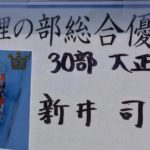 理の部総合優
30部 大正
新井 司